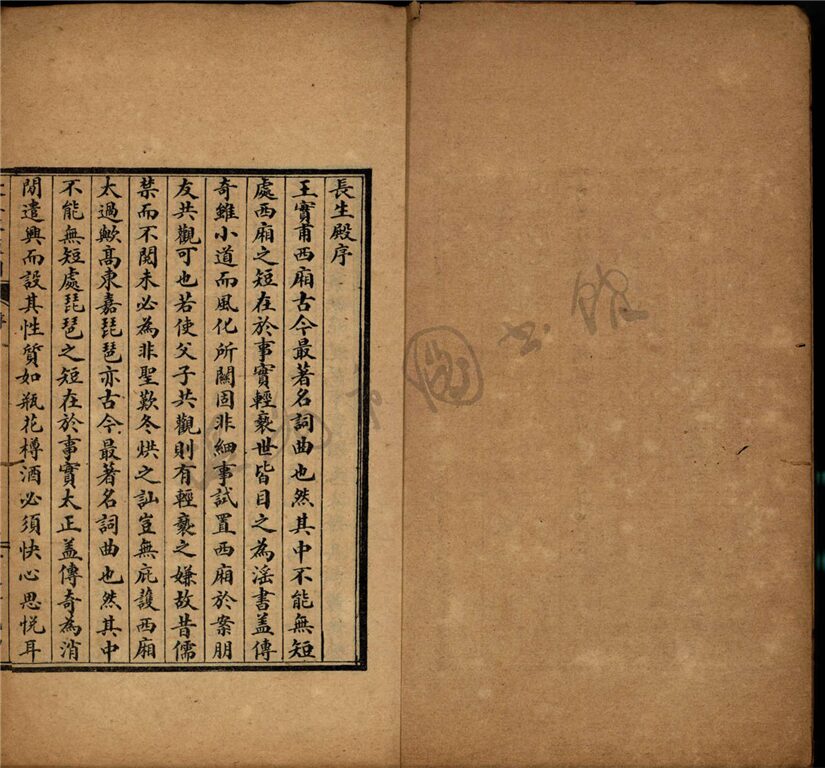 長生殿序
王實甫西廂古今最著名詞曲也然其中不能無短
處西廂之短在於事實輕褻世皆目之為淫書盖傳
奇雖小道而風化所關固非細事試置西廂於案朋
友共觀可也若使父子共觀則有輕褻之嫌故昔儒
禁而不閱未必為非聖歎冬烘之訕豈無庇護西廂
太過歟髙東嘉琵琶亦古今最著名詞曲也然其中
不能無短處琵琶之短在於事實太正盖傳奇為消
閒遣興而設其性質如瓶花樽酒必須快心思悅耳
序
書館